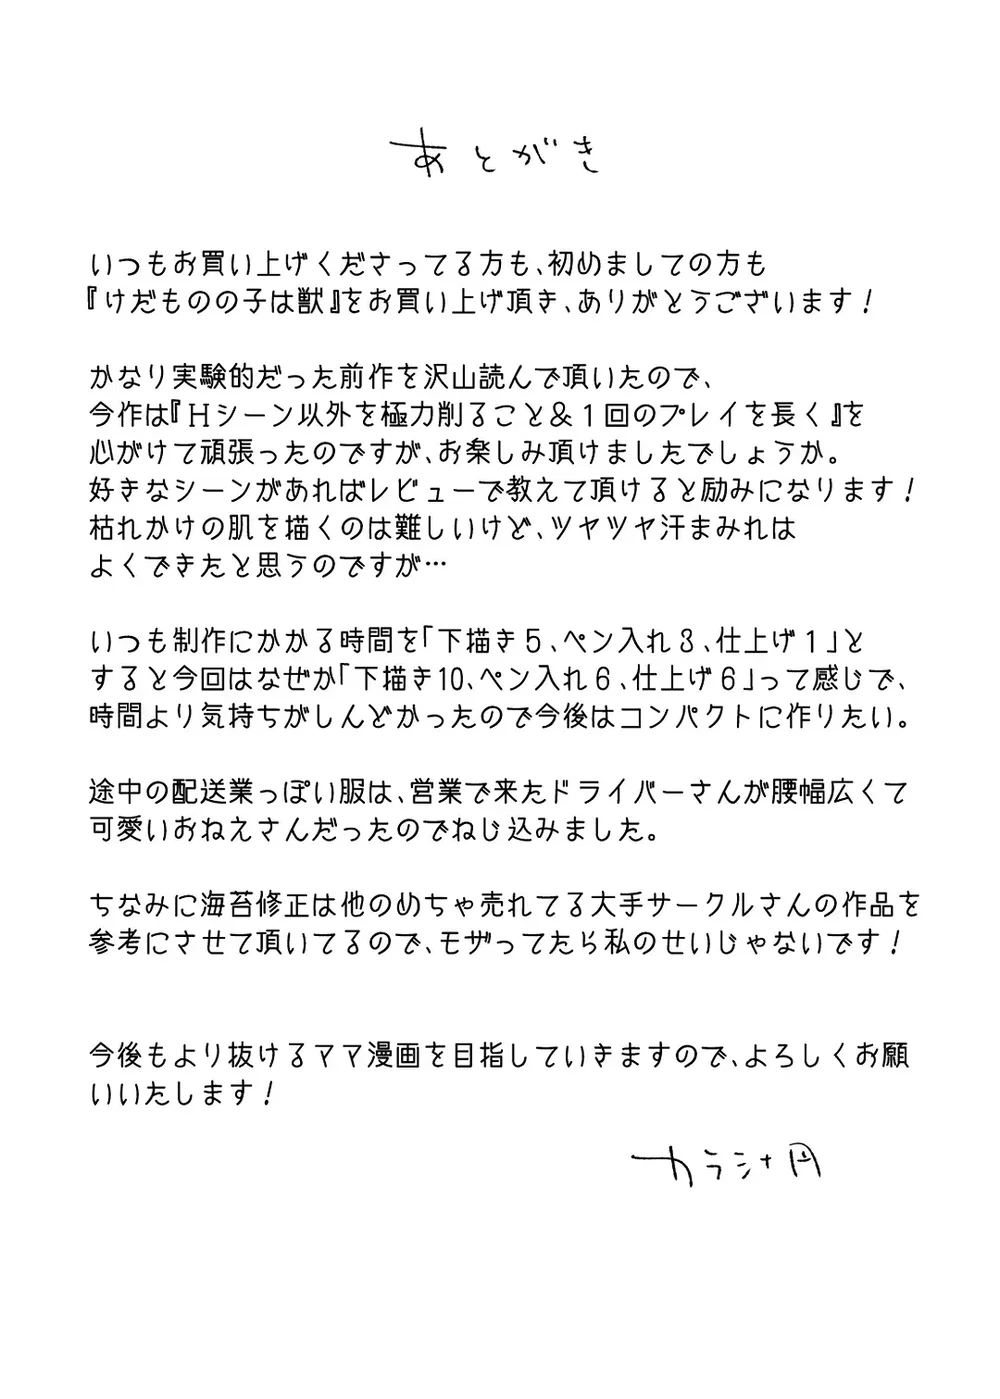 あとがき
いつもお買い上げくださってる方も、初めましての方も
『けだものの子は獣』をお買い上げ頂き、ありがとうございます!
かなり実験的だった前作を沢山読んで頂いたので、
今作は『Hシーン以外を極力削ること&1回のプレイを長く』を
心がけて頑張ったのですが、お楽しみ頂けましたでしょうか。
好きなシーンがあればレビューで教えて頂けると励みになります!
枯れかけの肌を描くのは難しいけど、ツヤツヤ汗まみれは
よくできたと思うのですが…
いつも制作にかかる時間を「下描き5、ペン入れ3、仕上げ1」と
すると今回はなぜか「下描き10、ペン入れ6、仕上げ6」って感じで、
時間より気持ちがしんどかったので今後はコンパクトに作りたい。
途中の配送業っぽい服は、営業で来たドライバーさんが腰幅広くて
可愛いおねえさんだったのでねじ込みました。
ちなみに海苔修正は他のめちゃ売れてる大手サークルさんの作品を
参考にさせて頂いてるので、モザってたら私のせいじゃないです!
今後もより抜けるママ漫画を目指していきますので、よろしくお願
いいたします!
カラシナ円